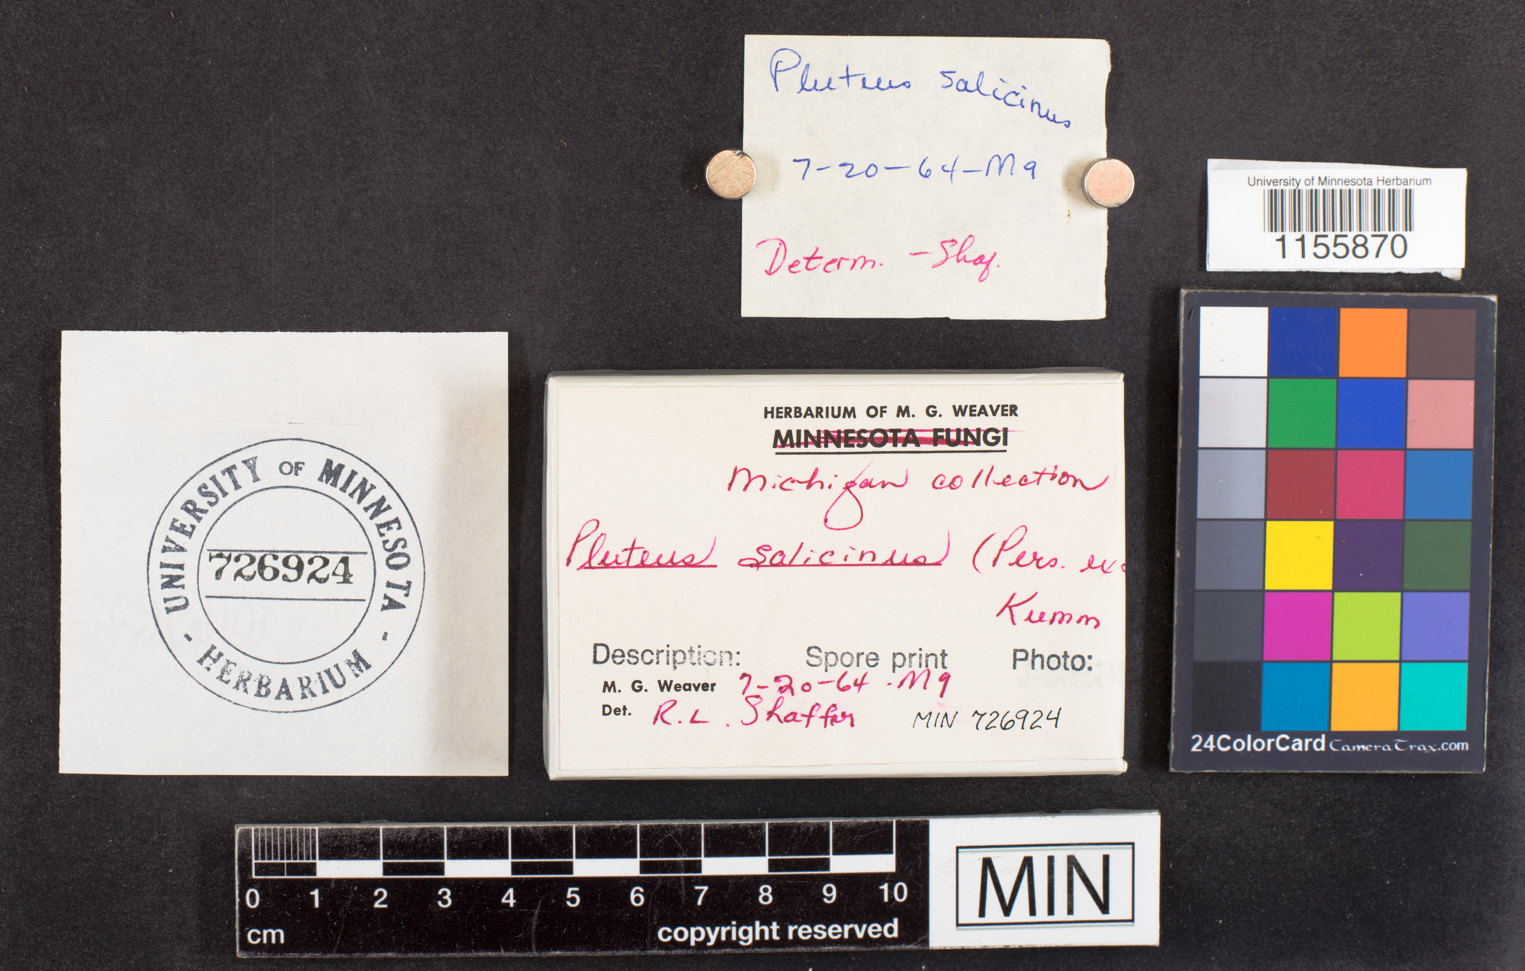 Pluteus salicinus
7-20-64-M9
Determ. - Shaf.
University of Minnesota Herbarium
1155870
UNIVERSITY OF MINNESOTA
726924
- HERBARIUM -
HERBARIUM OF M. G. WEAVER
MINNESOTA FUNGI
Michigan collection
Pluteus salicinus (Pers. ex
Kumm
Description: Spore print Photo:
M. G. Weaver 7-20-64-M9
Det. R.L. Shaffer MIN 726924
24ColorCard CameraTrax.com
0 1 2 3 4 5 6 7 8 9 10
cm copyright reserved
MIN